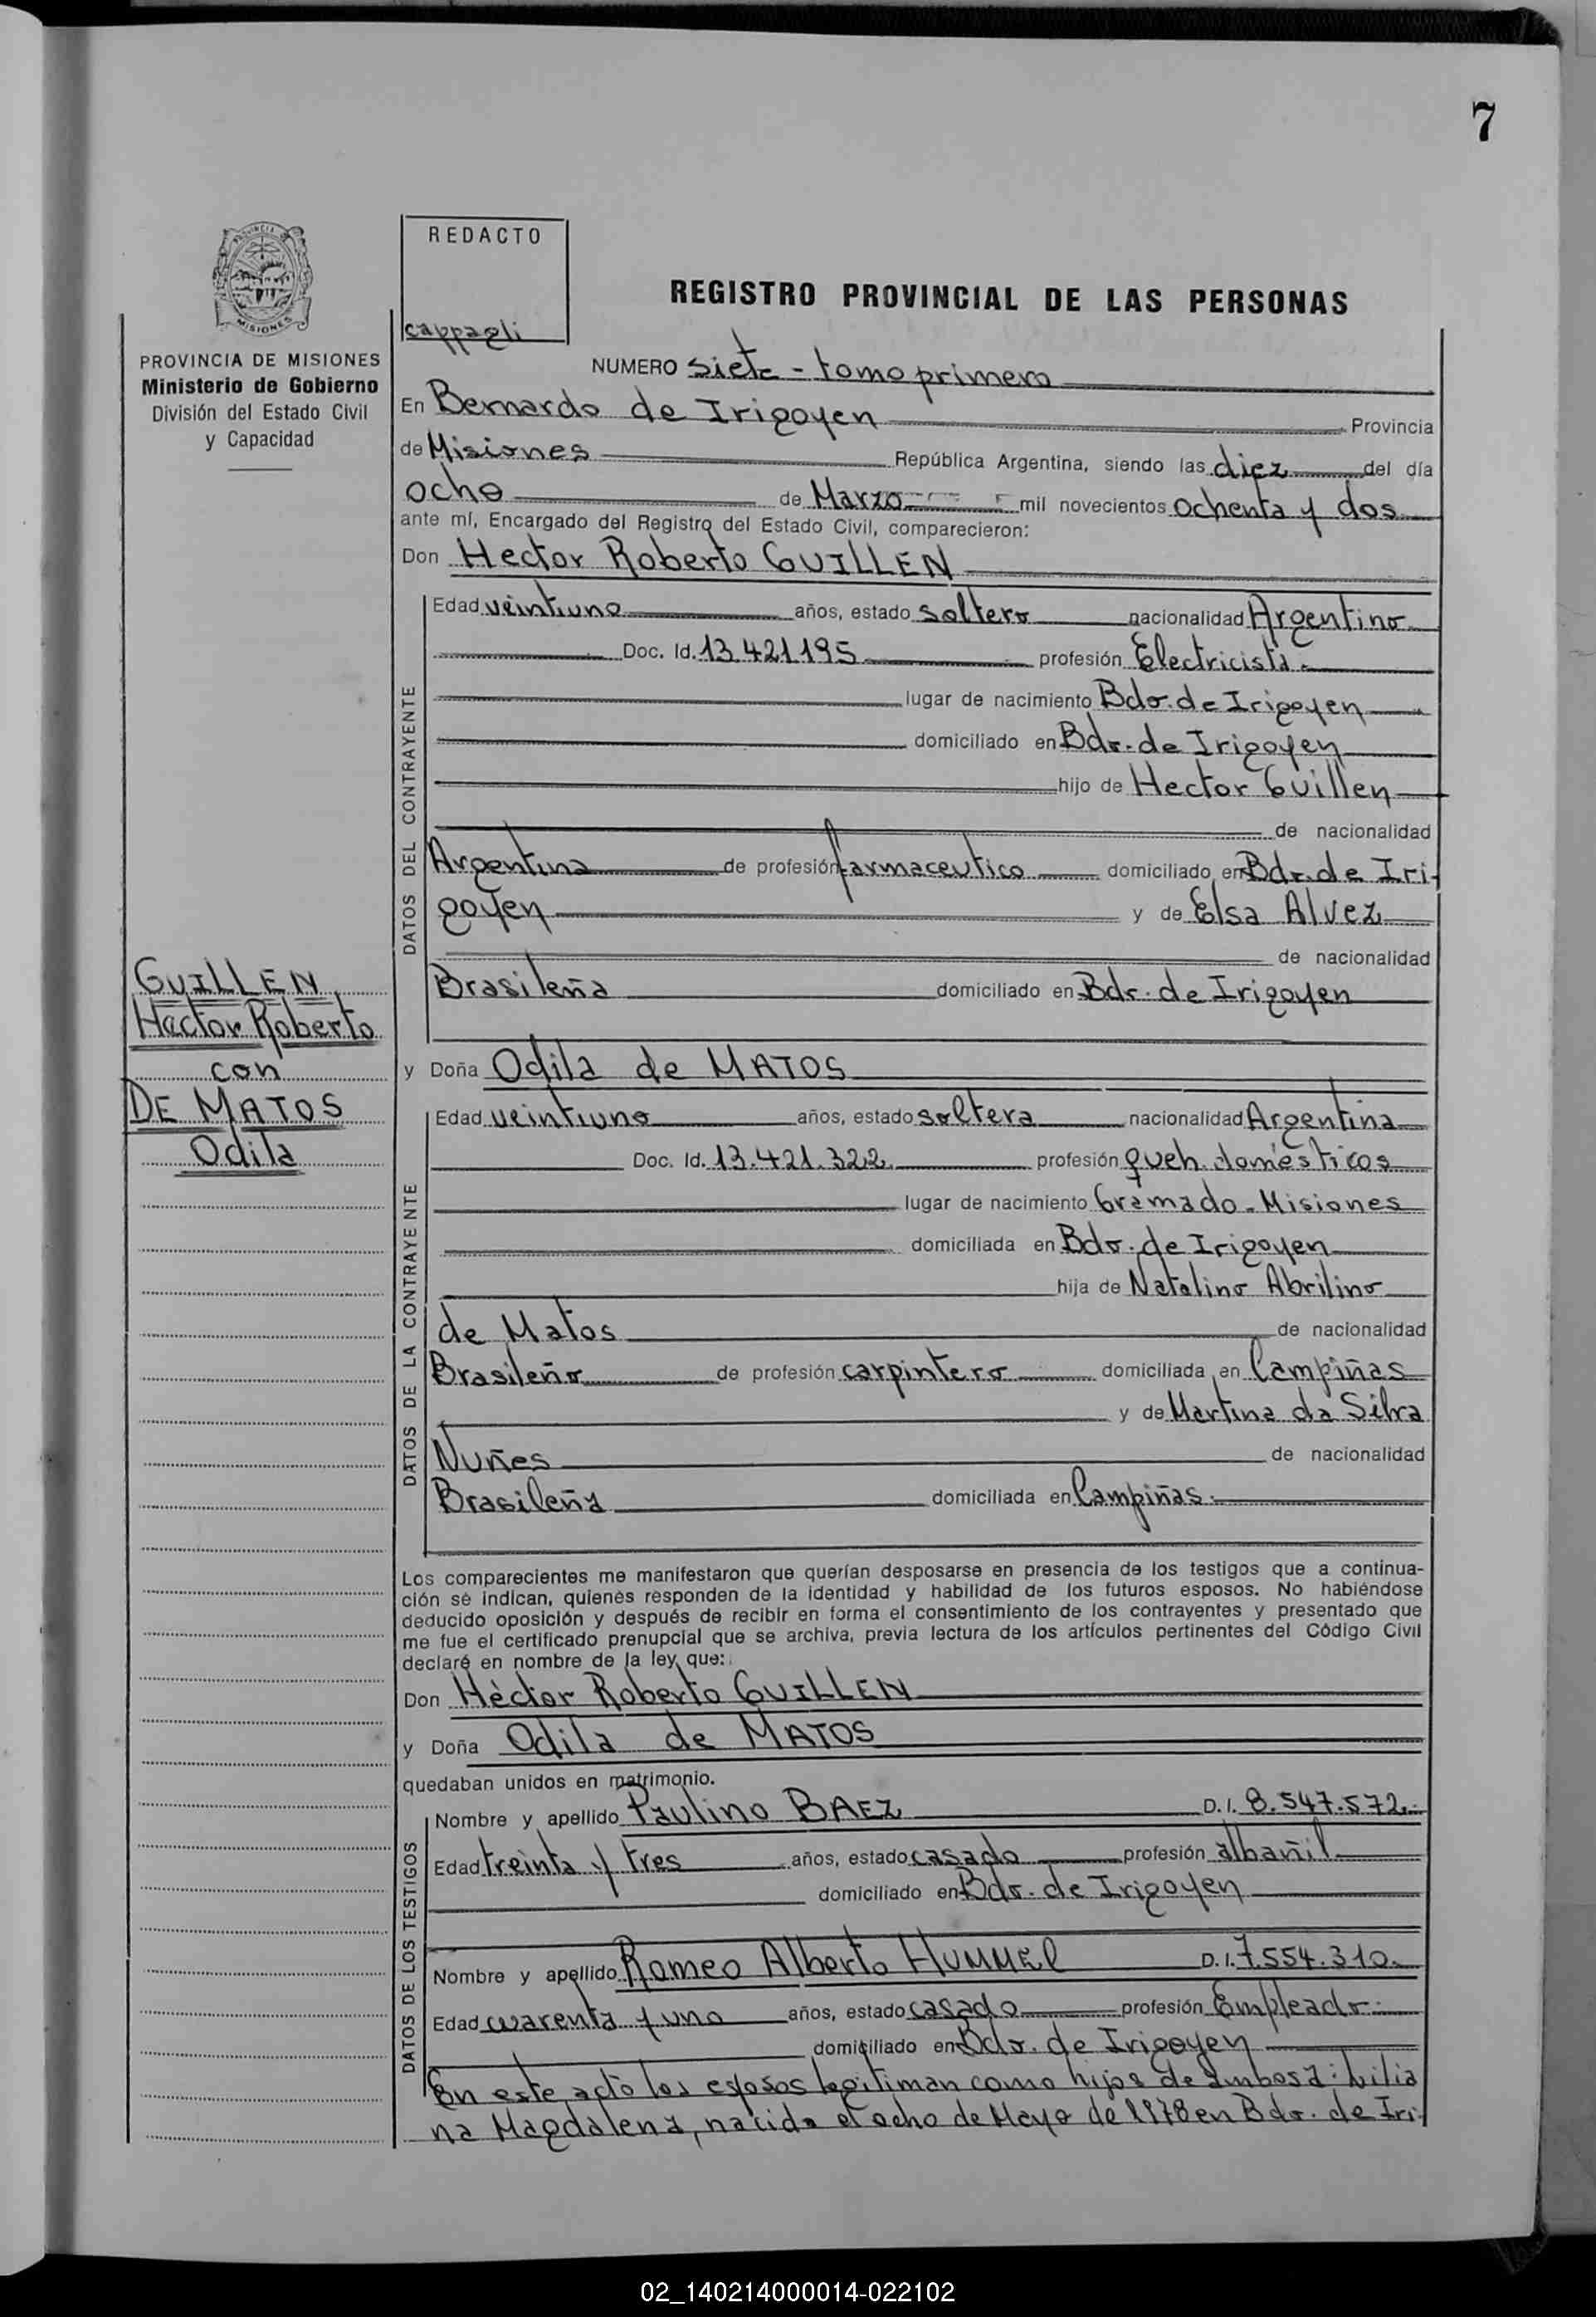 7
PROVINCIA DE MISIONES
Ministerio de Gobierno
División del Estado Civil
y Capacidad
REDACTO
cappagli
REGISTRO PROVINCIAL DE LAS PERSONAS
NUMERO siete - tomo primero
En Bernardo de Irigoyen Provincia
de Misiones República Argentina, siendo las diez del día
ocho de Marzo mil novecientos ochenta y dos
ante mí, Encargado del Registro del Estado Civil, comparecieron:
Don Hector Roberto GUILLEN
DATOS DEL CONTRAYENTE
Edad veintiuno años, estado soltero nacionalidad Argentino
Doc. Id. 13.421.195 profesión Electricista
lugar de nacimiento Bdo. de Irigoyen
domiciliado en Bdo. de Irigoyen
hijo de Hector Guillen
de nacionalidad
Argentina de profesión farmaceutico domiciliado en Bdo. de Iri
goyen y de Elsa Alvez
de nacionalidad
Brasileña domiciliado en Bdo. de Irigoyen
GUILLEN
Hector Roberto
con
DE MATOS
Odila
y Doña Odila de MATOS
DATOS DE LA CONTRAYENTE
Edad veintiuno años, estado soltera nacionalidad Argentina
Doc. Id. 13.421.322 profesión queh. domésticos
lugar de nacimiento Gramado - Misiones
domiciliada en Bdo. de Irigoyen
hija de Natalino Abrilino
de Matos de nacionalidad
Brasileño de profesión carpintero domiciliada en Campiñas
y de Martina da Silva
Nuñes de nacionalidad
Brasileña domiciliada en Campiñas.
Los comparecientes me manifestaron que querían desposarse en presencia de los testigos que a continua-
ción se indican, quienes responden de la identidad y habilidad de los futuros esposos. No habiéndose
deducido oposición y después de recibir en forma el consentimiento de los contrayentes y presentado que
me fue el certificado prenupcial que se archiva, previa lectura de los artículos pertinentes del Código Civil
declaré en nombre de la ley que:
Don Héctor Roberto GUILLEN
y Doña Odila de MATOS
quedaban unidos en matrimonio.
DATOS DE LOS TESTIGOS
Nombre y apellido Paulino BAEZ D.I. 8.547.572.-
Edad treinta y tres años, estado casado profesión albañil
domiciliado en Bdo. de Irigoyen
Nombre y apellido Romeo Alberto HUMMEL D.I. 7.554.310.
Edad cuarenta y uno años, estado casado profesión Empleado.
domiciliado en Bdo. de Irigoyen
En este acto los esposos legitiman como hijos de ambos a: Lilia
na Magdalena, nacida el ocho de Mayo de 1978 en Bdo. de Iri-
02_140214000014-022102